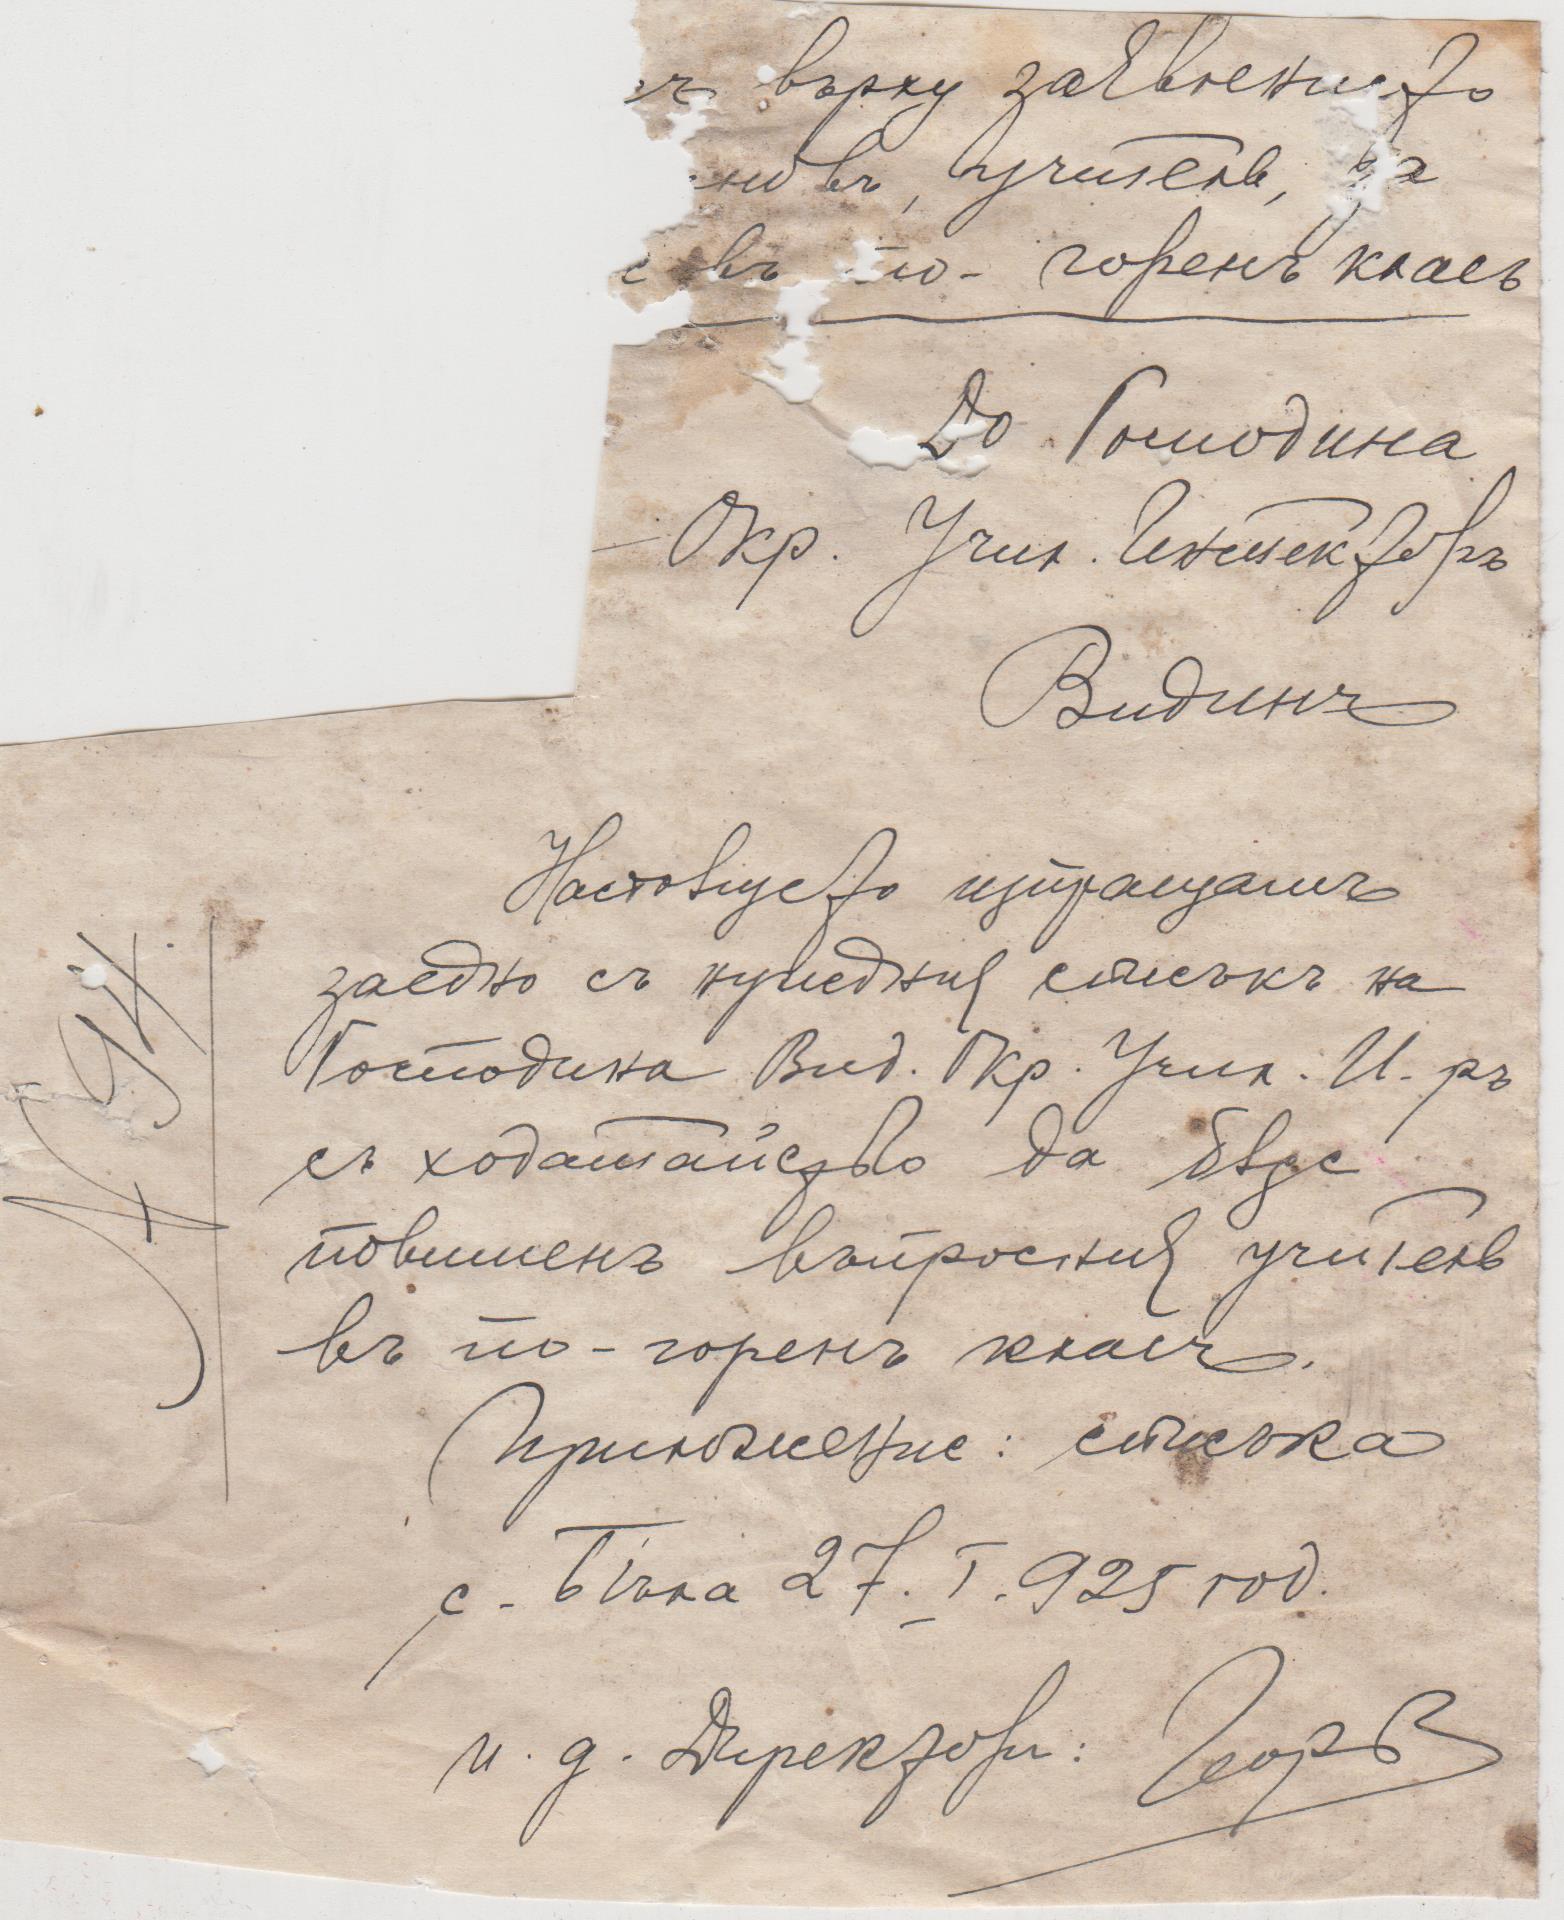 върху заявлението
новъ, учитель, да
въ по- горенъ класъ
До Господина
Окр. Учил. Инспекторъ
Видинъ
Настоящето изпращамъ
заедно съ нуждния списъкъ на
Господина Вид. Окр. Учил. И-ръ
съ ходатайство да бѫде
повишенъ въпросния учитель
въ по-горенъ класъ.
Приложение: списъка
с. 27. I. 925 год.
и. д. Директоръ: